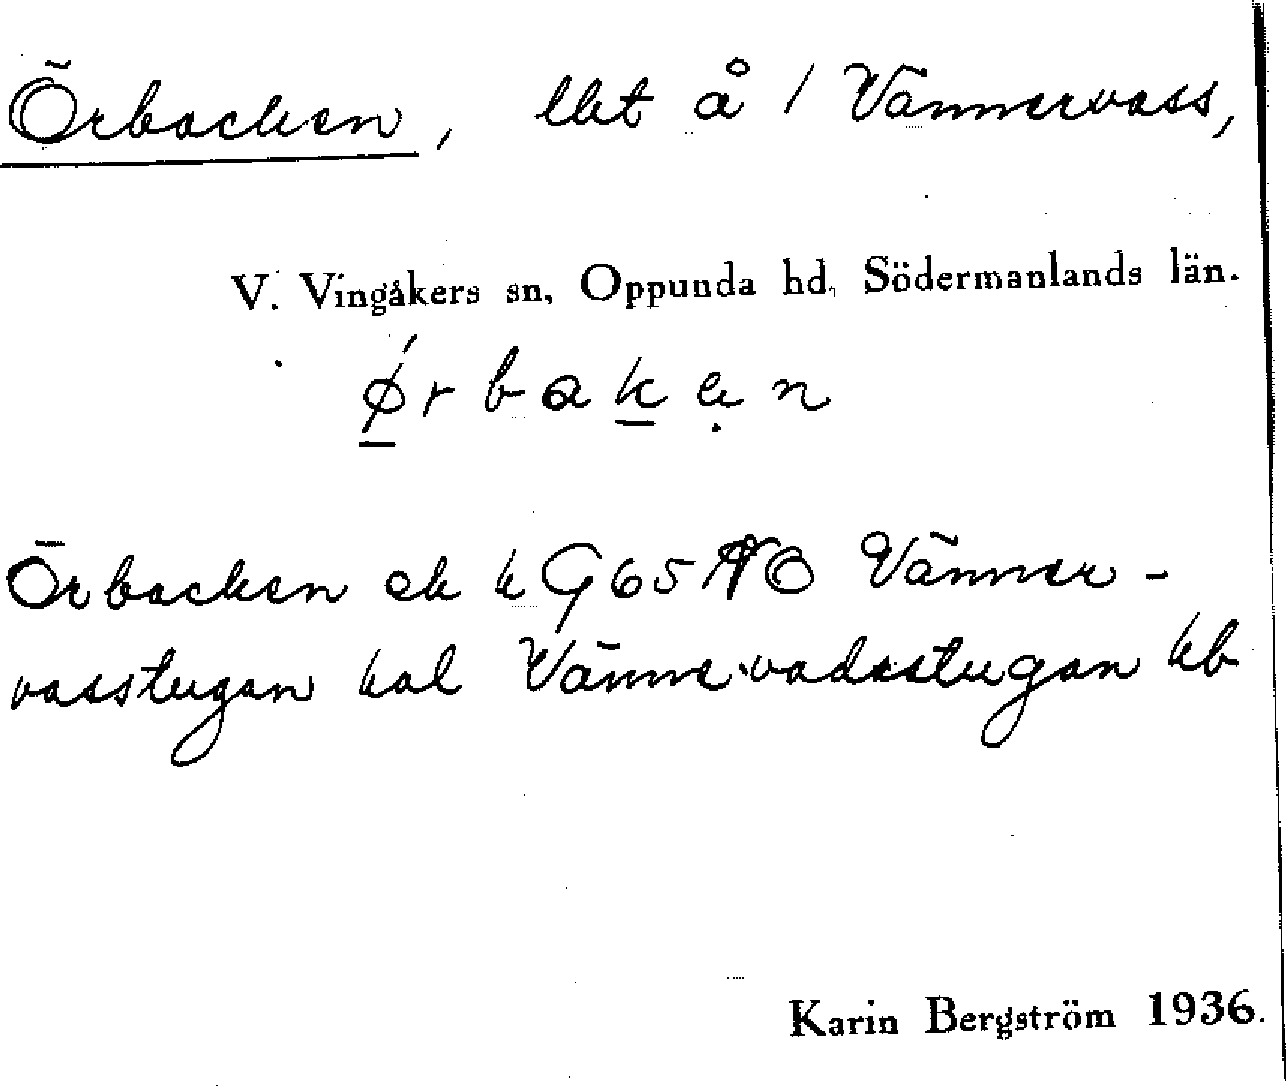 Örbacken, lht å 1 Vännervass,
V. Vingåkers sn, Oppunda hd, Södermanlands län.
ǿrbakẹn
Örbacken ek k G65NO Vänner-
vasstugan kal Vännevadsstugan kb
Karin Bergström 1936.